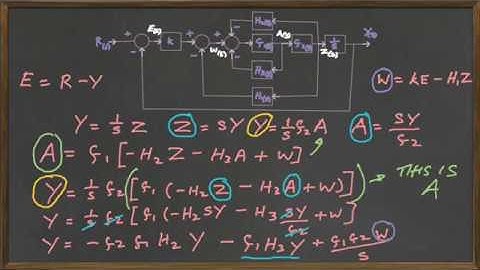 R(s)
+
-
E(s)
K
+
-
W(s)
+
-
-
H2(s)
G1(s)
A(s)
G2(s)
1/s
Z(s)
Y(s)
H3(s)
H1(s)
E = R - Y
W = KE - H1Z
Y = 1/s Z Z = SY Y = 1/s G2 A A = SY/G2
A = G1 [-H2 Z - H3 A + W]
Y = 1/s G2 [G1 (-H2 Z - H3 A + W)]
THIS IS
A
Y = 1/s G2 [G1 (-H2 SY - H3 SY/G2 + W]
Y = - G2 G1 H2 Y - G1 H3 Y + G1G2 W/S